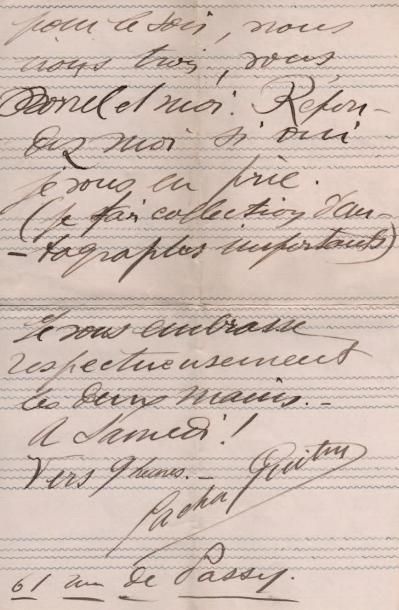 pour le soir, nous
nous trois, vous,
et moi. Répon-
dez moi si oui
je vous en prie.
(je fais collection d'au-
-tographes importants)
Je vous embrasse
respectueusement
les deux mains. -
A Samedi !
Vers 9 heures. -
Sacha Guitry
61 rue de Passy.